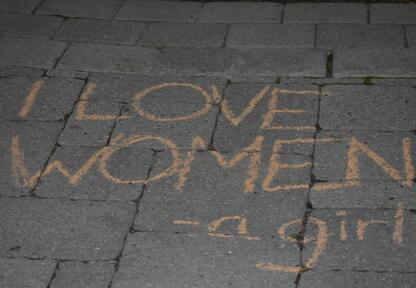 I LOVE
WOMEN
-a girl